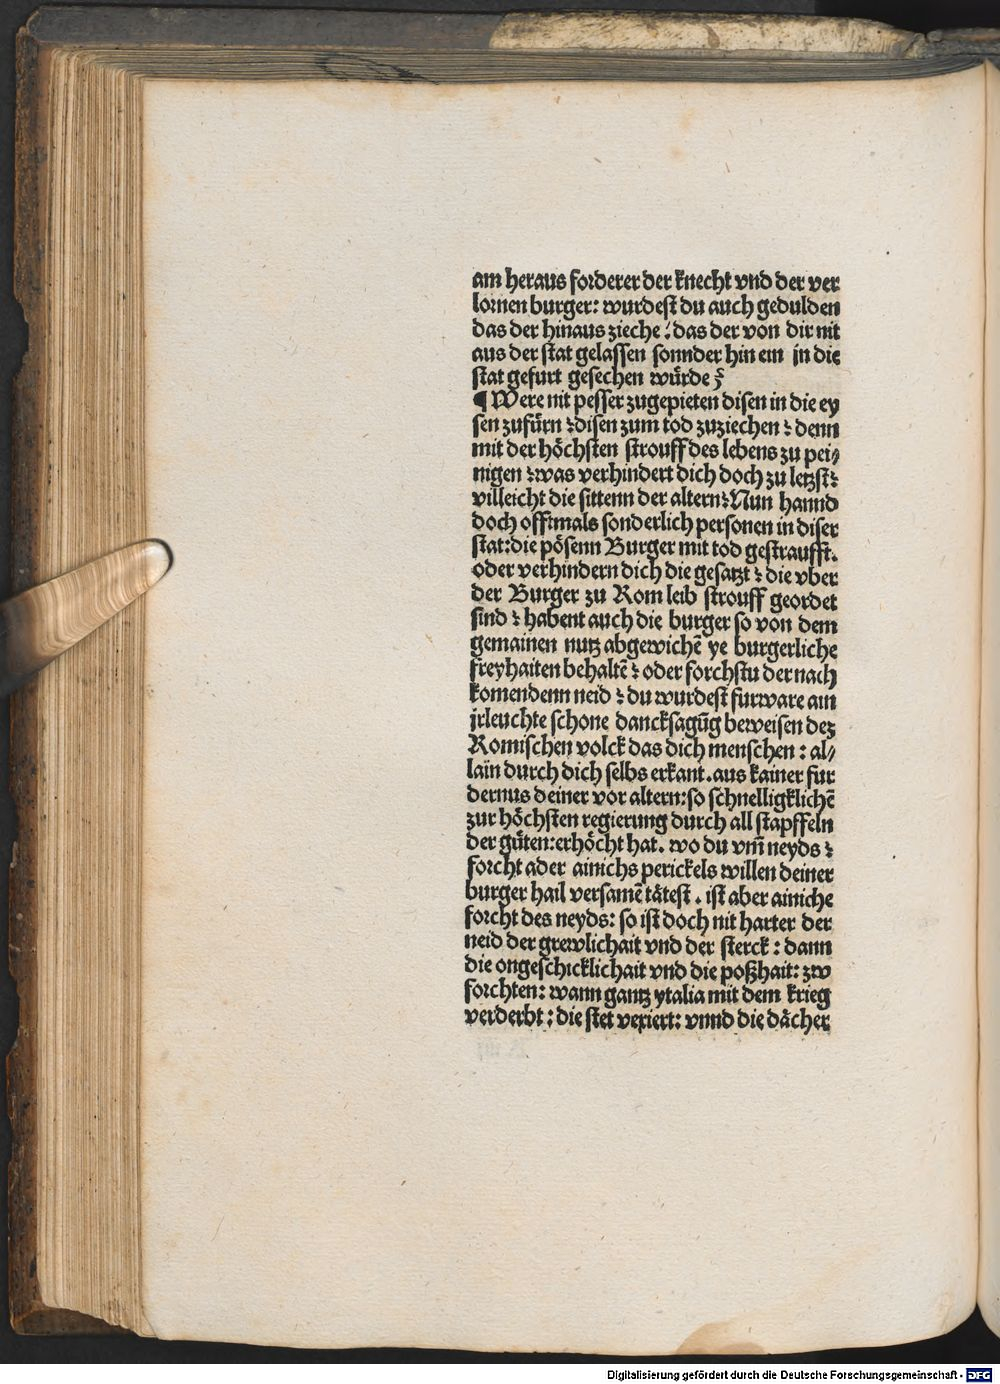 am heraus forderer der knecht vnd der ver
lornen burger: wurdest du auch gedulden
das der hinaus zieche / das der von dir nit
aus der stat gelassen sonnder hin ein in die
stat gefurt gesechen wůrde ꝛ̃
¶ Were nit pesser zugepieten disen in die ey
sen zufůrn ꝛ disen zum tod zuziechen ꝛ denn
mit der hőchsten strouff des lebens zu pei⸗
nigen ꝛ was verhindert dich doch zu letzst ꝛ
villeicht die sittenn der altern ꝛ Nun hannd
doch offtmals sonderlich personen in diser
stat: die pősenn Burger mit tod gestraufft.
oder verhindern dich die gesatzt ꝛ die vber
der Burger zu Rom leib strouff geordet
sind ꝛ habent auch die burger so von dem
gemainen nutz abgewichē ye burgerliche
freyhaiten behaltē ꝛ oder forchstu der nach
komendenn neid ꝛ du wurdest furware ain
jrleuchte schone dancksagūg beweisen dez
Romischen volck das dich menschen : al⸗
lain durch dich selbs erkant. aus kainer fur
dernus deiner vor altern: so schnelligklichē
zur hőchsten regierung durch all stapffeln
der gůten: erhőcht hat. wo du vm̄ neyds ꝛ
forcht ader ainichs perickels willen deiner
burger hail versamē tåtest. ist aber ainiche
forcht des neyds: so ist doch nit harter der
neid der grewlichait vnd der sterck : dann
die ongeschicklichait vnd die poßhait: zw
forchten: wann gantz ytalia mit dem krieg
verderbt : die stet vexiert: vnnd die dåcher
Digitalisierung gefördert durch die Deutsche Forschungsgemeinschaft - DFG